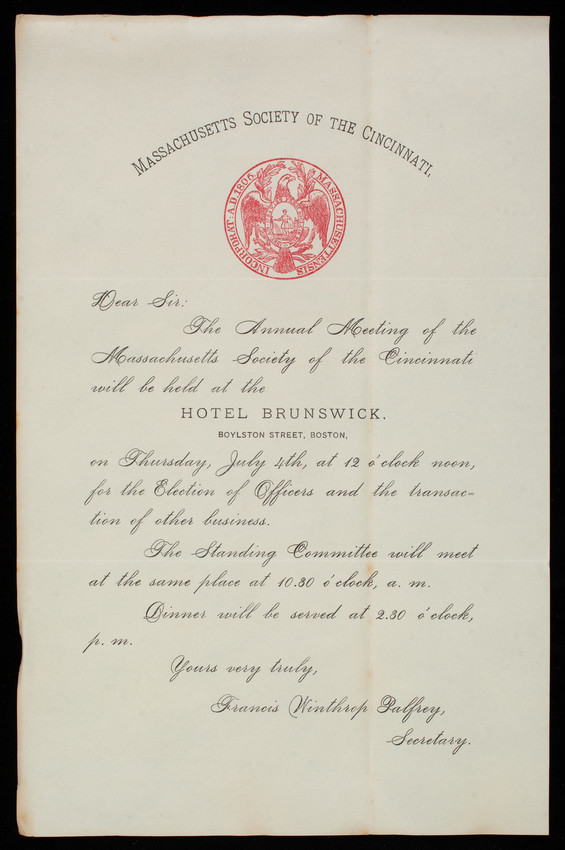 MASSACHUSETTS SOCIETY OF THE CINCINNATI.
INCORPORAT. A.D. 1806. MASSACHUSETTENSIS
Dear Sir:
The Annual Meeting of the
Massachusetts Society of the Cincinnati
will be held at the
HOTEL BRUNSWICK,
BOYLSTON STREET, BOSTON,
on Thursday, July 4th, at 12 o'clock noon,
for the Election of Officers and the transac-
tion of other business.
The Standing Committee will meet
at the same place at 10.30 o'clock, a. m.
Dinner will be served at 2.30 o'clock,
p. m.
Yours very truly,
Francis Winthrop Palfrey,
Secretary.